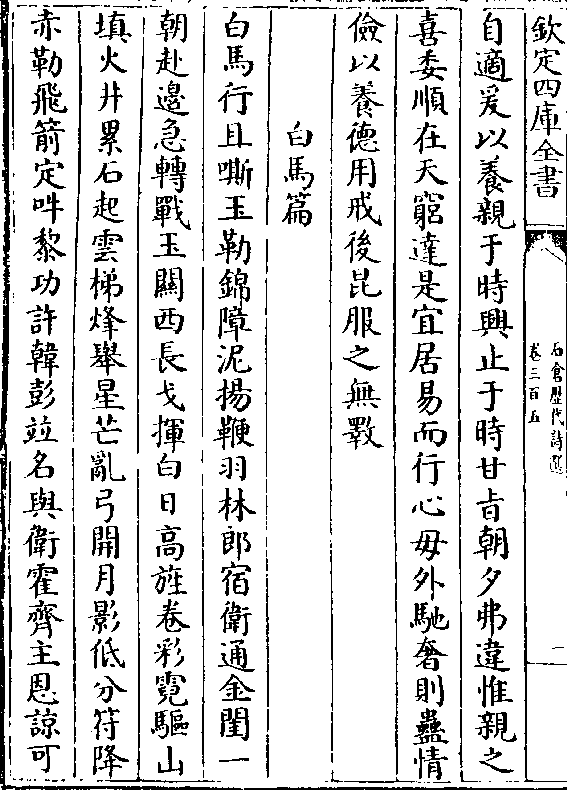 欽定四庫全書
石倉歴代詩選
卷三百五
一
自適爰以養親于時興止于時甘旨朝夕弗違惟親之
喜委順在天窮達是宜居易而行心毋外馳奢則蠱情
儉以養德用戒後昆服之無斁
白馬篇
白馬行且嘶玉勒錦障泥揚鞭羽林郎宿衛通金閨一
朝赴邊急轉戰玉關西長戈揮白日高旌卷彩霓驅山
填火井累石起雲梯烽舉星芒亂弓開月影低分符降
赤勒飛箭定吽黎功許韓彭竝名與衛霍齊主恩諒可